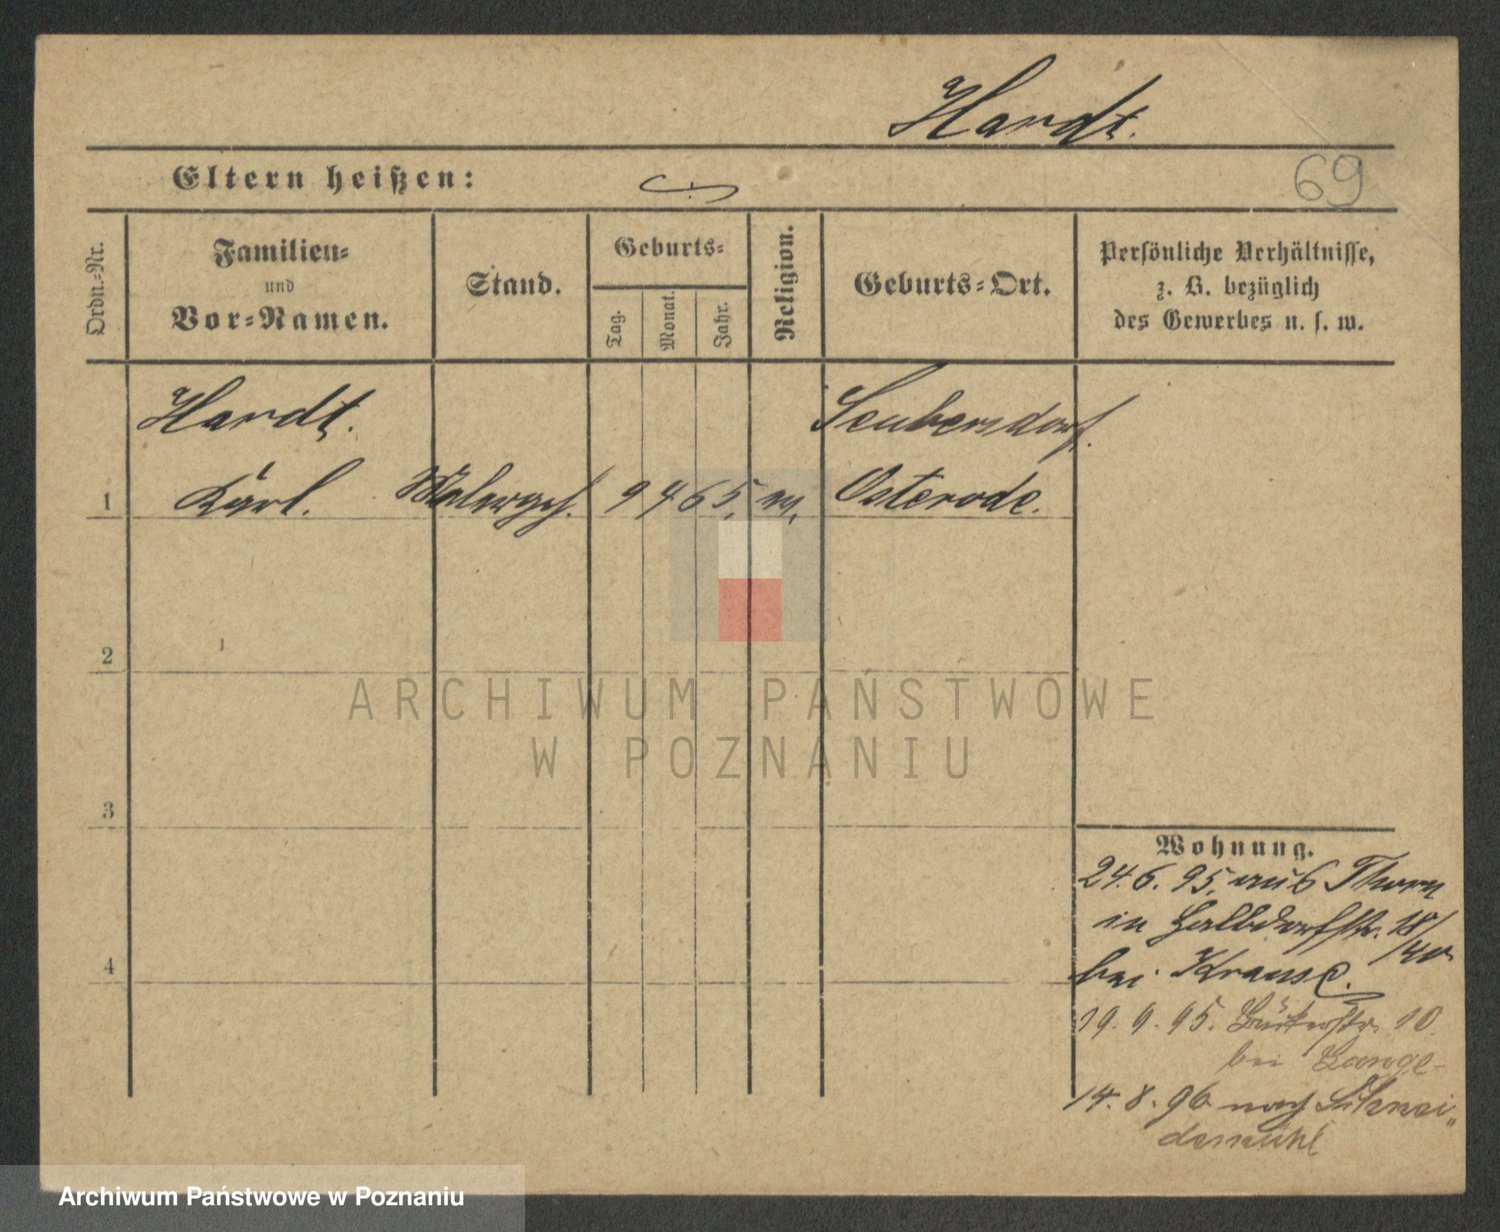 Hardt.
Eltern heißen:
69
Ordn.-Nr.
Familien-
und
Vor-Namen.
Stand.
Geburts-
Tag.
Monat.
Jahr.
Religion.
Geburts-Ort.
Persönliche Verhältnisse,
z. B. bezüglich
des Gewerbes u. s. w.
Hardt. Seubersdorf.
1 Karl. Malergeh. 9 4 65. ev. Osterode.
2
ARCHIWUM PAŃSTWOWE
W POZNANIU
3
Wohnung.
24.6.95. aus Thorn
in Halbdorfstr. 18/
40
4
bei Krause.
19.9.95. 10
bei Lange
14.8.96 nach Schnei„
demühl
Archiwum Państwowe w Poznaniu